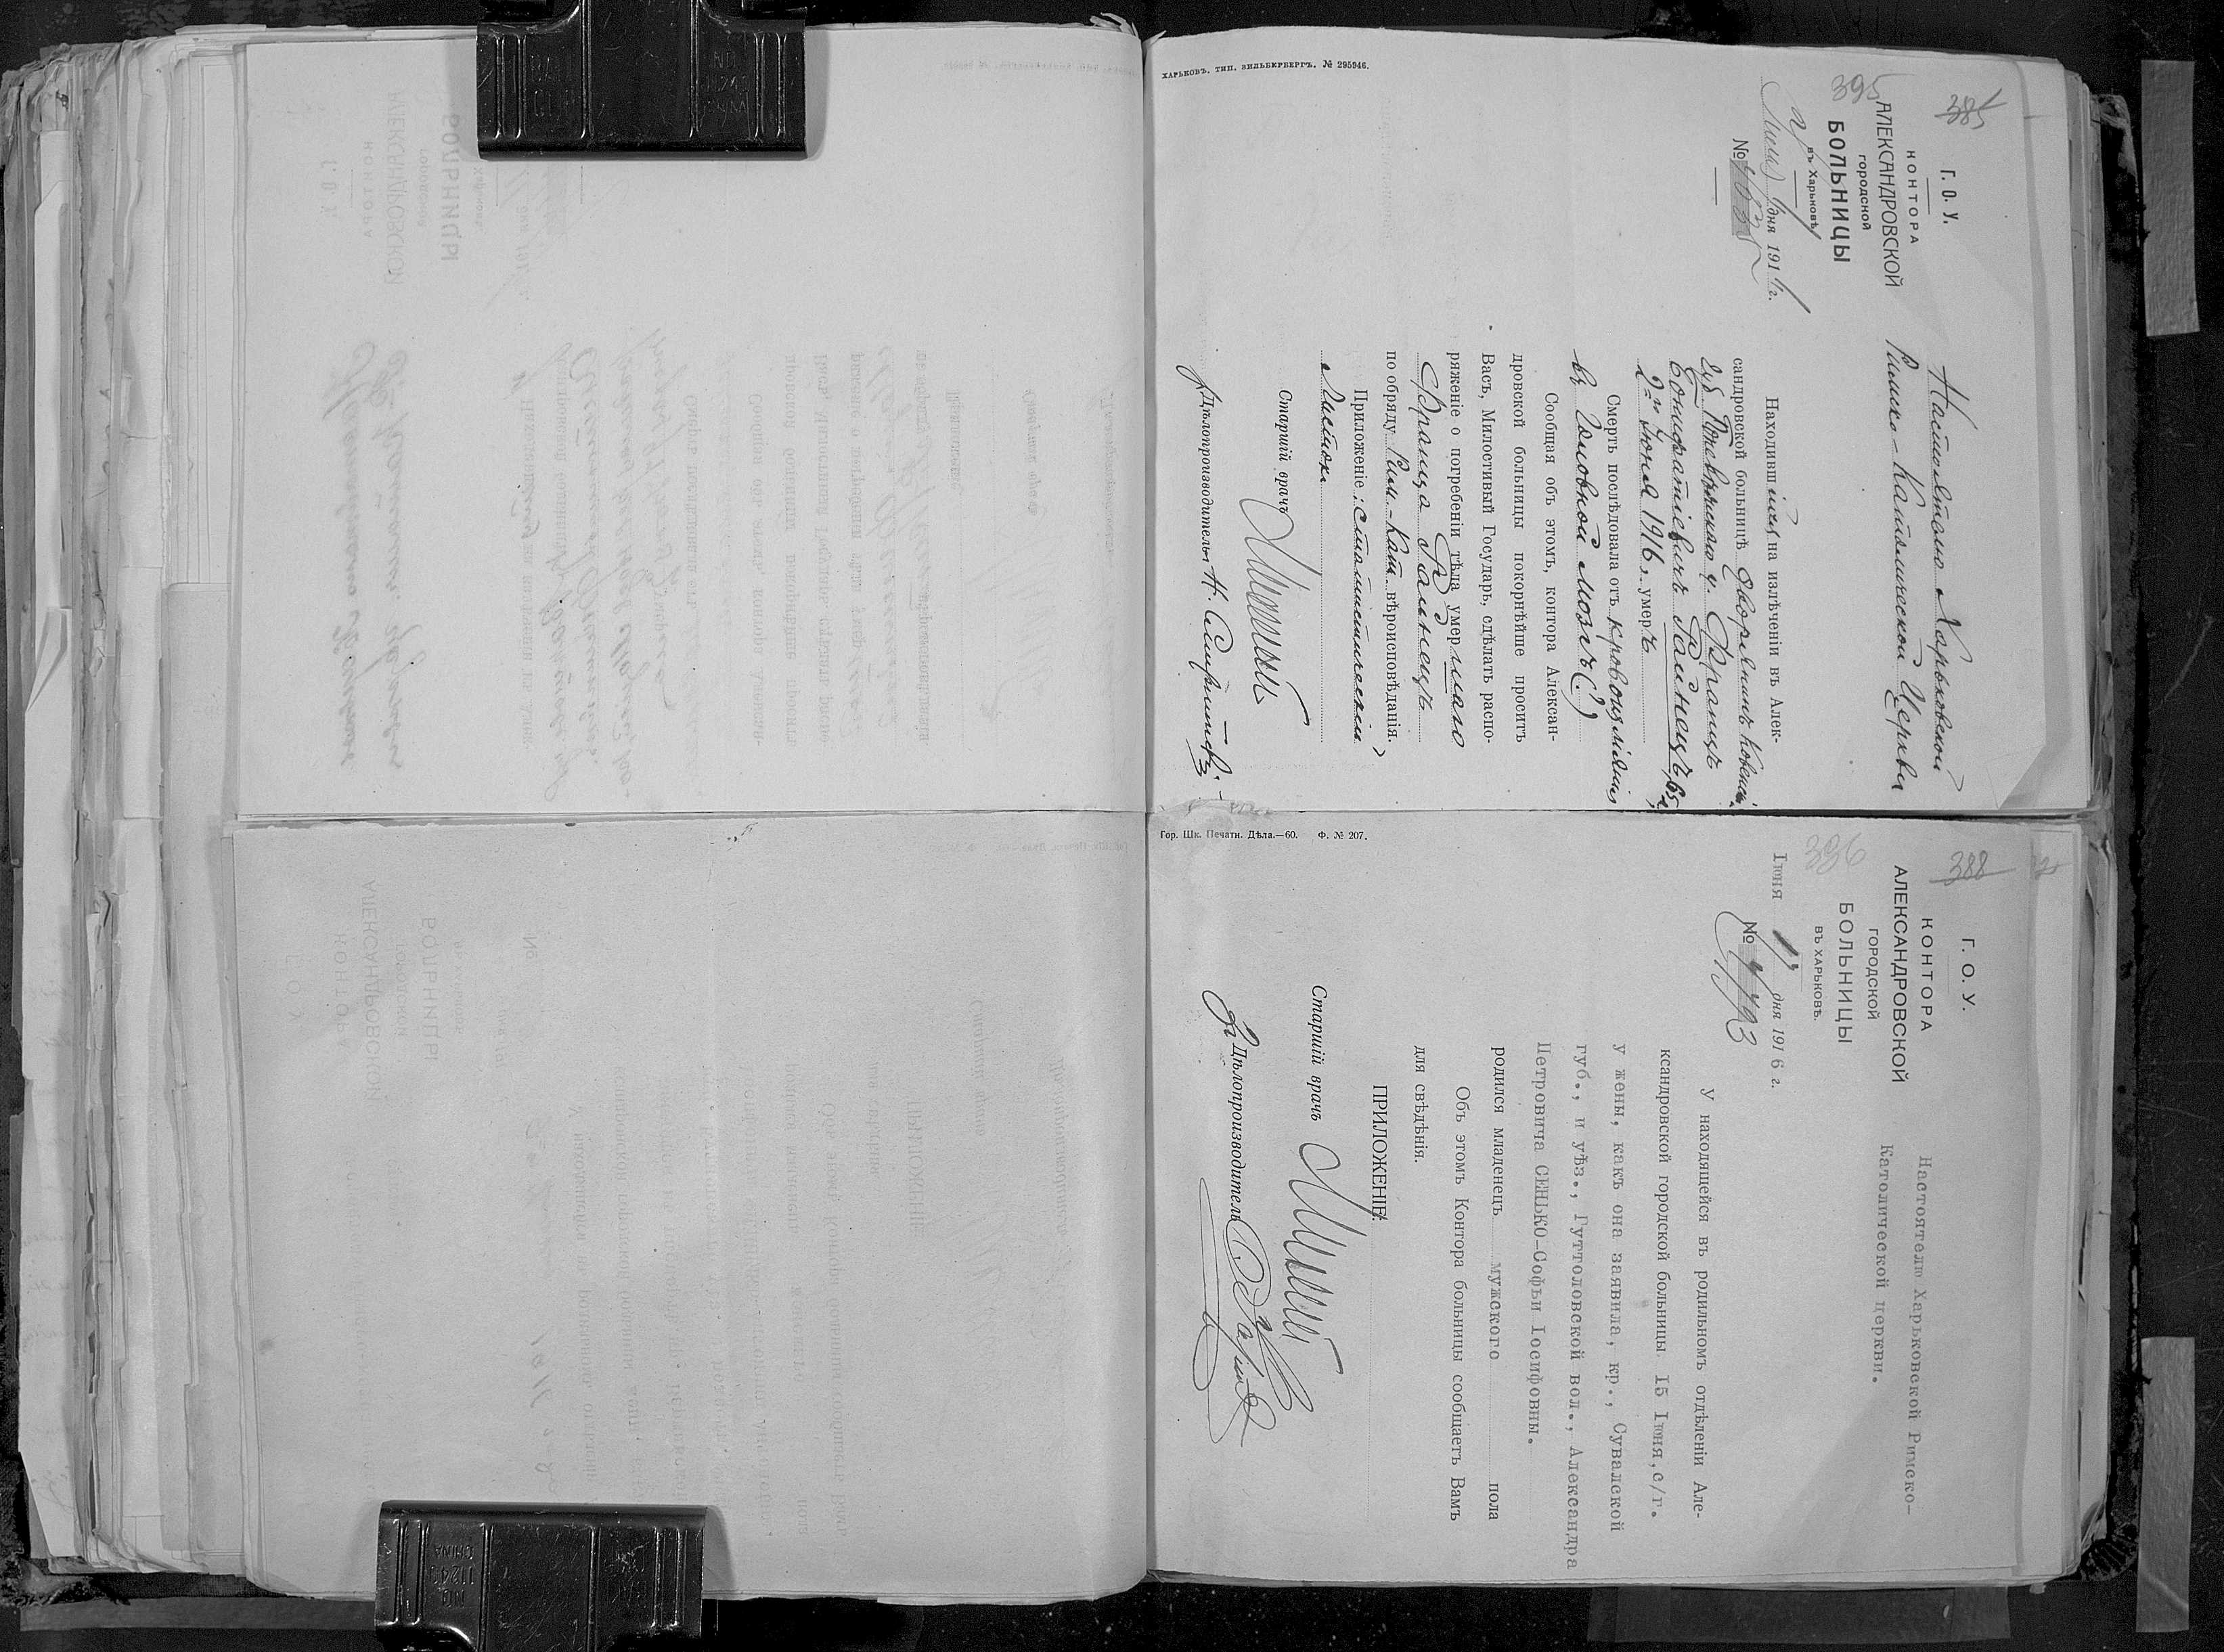 385
395
Г. О. У.
КОНТОРА
АЛЕКСАНДРОВСКОЙ
ГОРОДСКОЙ
БОЛЬНИЦЫ
въ Харьковѣ
дня 1916 г.
№
Настоятелю Харьковской
Римско-Католической Церкви
Находившійся на излѣченіи въ Алек-
сандровской больницѣ дворянинъ Ковенск.
губ. у. Францъ
Бонифатіевичъ Райнецъ, 65 л.
2го Іюня 1916 г. умеръ
Смерть послѣдовала отъ кровоизліянія
въ головной мозгъ (.)
Сообщая объ этомъ, контора Алексан-
дровской больницы покорнѣйше проситъ
Васъ, Милостивый Государь, сдѣлать распо-
ряженіе о погребеніи тѣла умершаго
Франца Райнецъ
по обряду Рим-Кат. вѣроисповѣданія.
Приложеніе: статистическій
листокъ
Старшій врачъ
Дѣлопроизводитель Н.
ХАРЬКОВЪ. ТИП. ЗИЛЬБЕРБЕРГЪ. № 295946.
388
396
Г. О. У.
КОНТОРА
АЛЕКСАНДРОВСКОЙ
ГОРОДСКОЙ
БОЛЬНИЦЫ
ВЪ ХАРЬКОВѢ.
Іюня 17 дня 1916 г.
№ 4793
Настоятелю Харьковской Римско-
Католической церкви.
У находящейся въ родильномъ отдѣленіи Але-
ксандровской городской больницы 15 Іюня, с/г.
у жены, какъ она заявила, кр., Сувалской
губ., и уѣз., Гуттоловской вол., Александра
Петровича СЕНЬКО-Софьи Іосифовны.
родился младенецъ мужского пола
Объ этомъ Контора больницы сообщаетъ Вамъ
для свѣдѣнія.
ПРИЛОЖЕНІЕ:
Старшій врачъ
Дѣлопроизводитель
Гор. Шк. Печатн. Дѣла.—60. Ф. № 207.